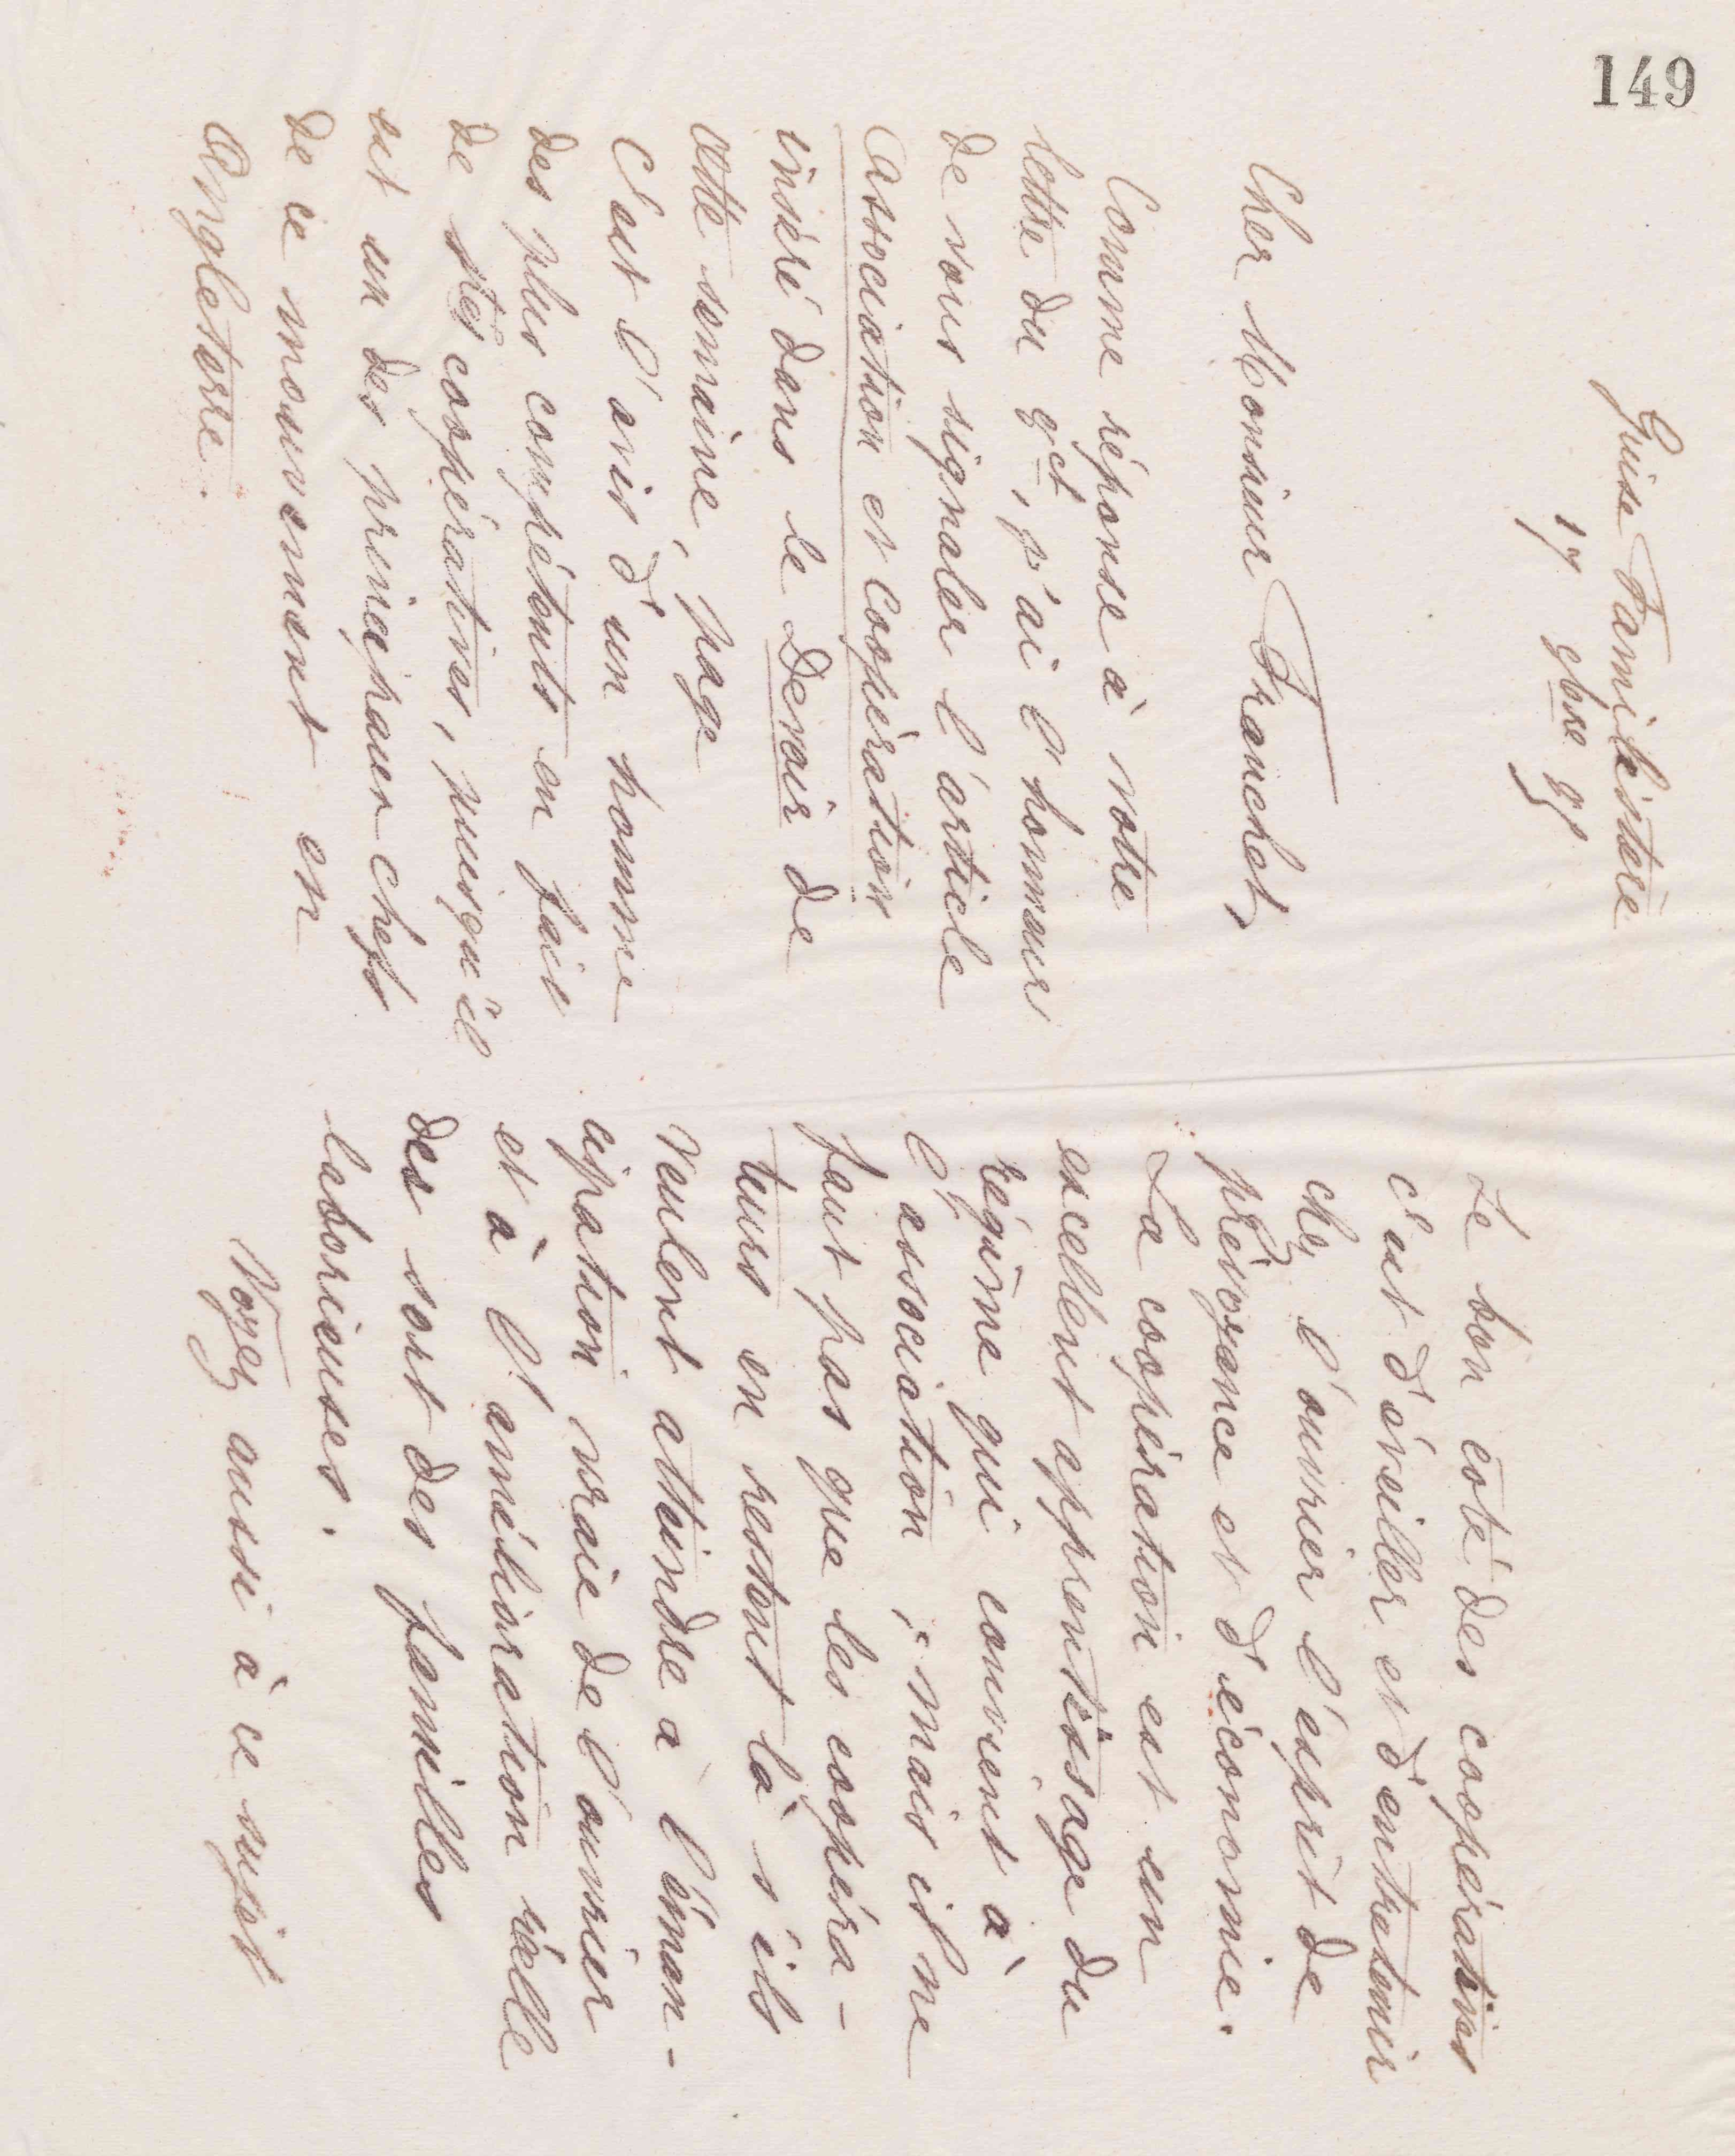 149
Guise Familistère
17 9bre 91
Cher Monsieur Franchet,
Comme réponse à votre
lettre du 9ct, j'ai l'honneur
de vous signaler l'article
Association et Coopération
inséré dans le Devoir de
cette semaine, page
C'est l'avis d'un homme
des plus compétents en fait
de stés coopératives, puisqu'il
est un des principaux chefs
de ce mouvement en
Angleterre.
Le bon coté des coopératives
c'est d'éveiller et d'entretenir
chez l'ouvrier l'esprit de
prévoyance et d'économie.
La coopération est un
excellent apprentissage du
régime qui convient à
l'association ; mais il ne
faut pas que les coopéra-
teurs en restent là s'ils
veulent atteindre à l'éman-
cipation vraie de l'ouvrier
et à l'amélioration réelle
des sort des familles
laborieuses.
Voyez aussi à ce sujet